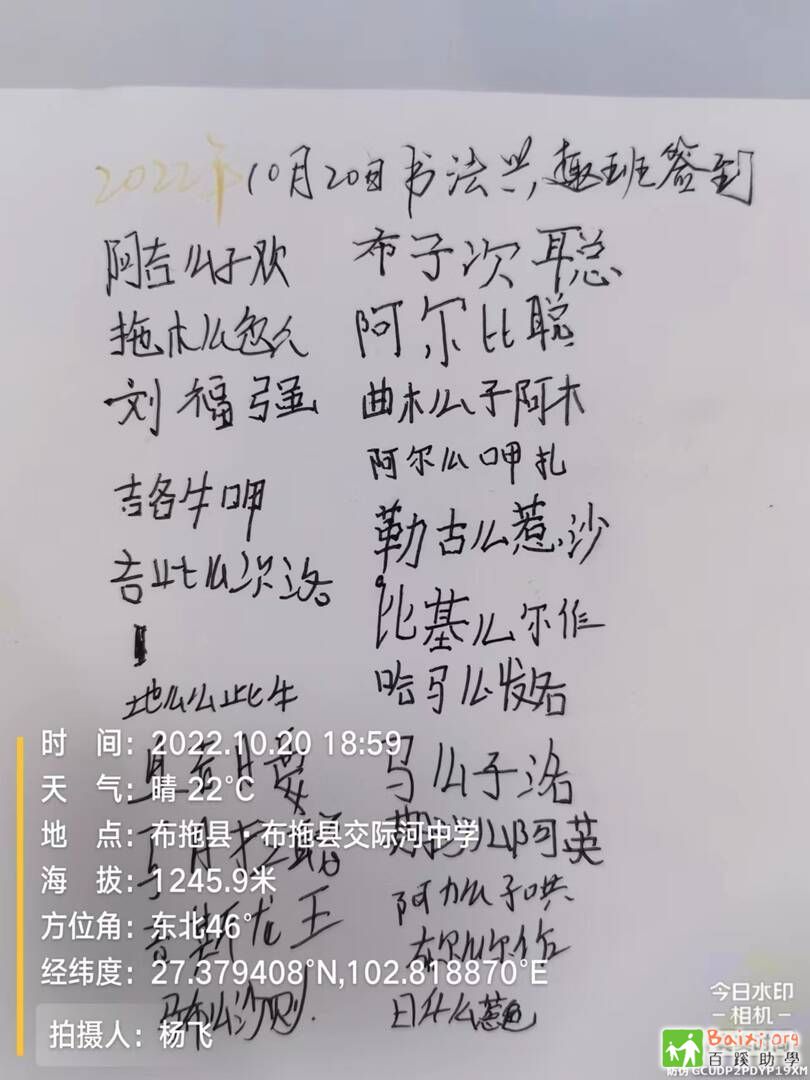 2022年10月20日书法兴趣班签到
阿吉么子欢
拖木么忽久
刘福强
吉各牛呷
吉比么次洛
地么么比牛
布子次聪
阿尔比聪
曲木么子阿木
阿尔么呷扎
勒古么惹沙
比基么尔作
哈马么发各
马么子洛
阿英
阿力么子哄
日什么惹
时 间：2022.10.20 18:59
天 气：晴 22℃
地 点：布拖县·布拖县交际河中学
海 拔：1245.9米
方位角：东北46°
经纬度：27.379408°N,102.818870°E
拍摄人：杨飞
今日水印
-相机-
Baixi.org
百蹊助学
防伪 GCUDP2PDYP19XM